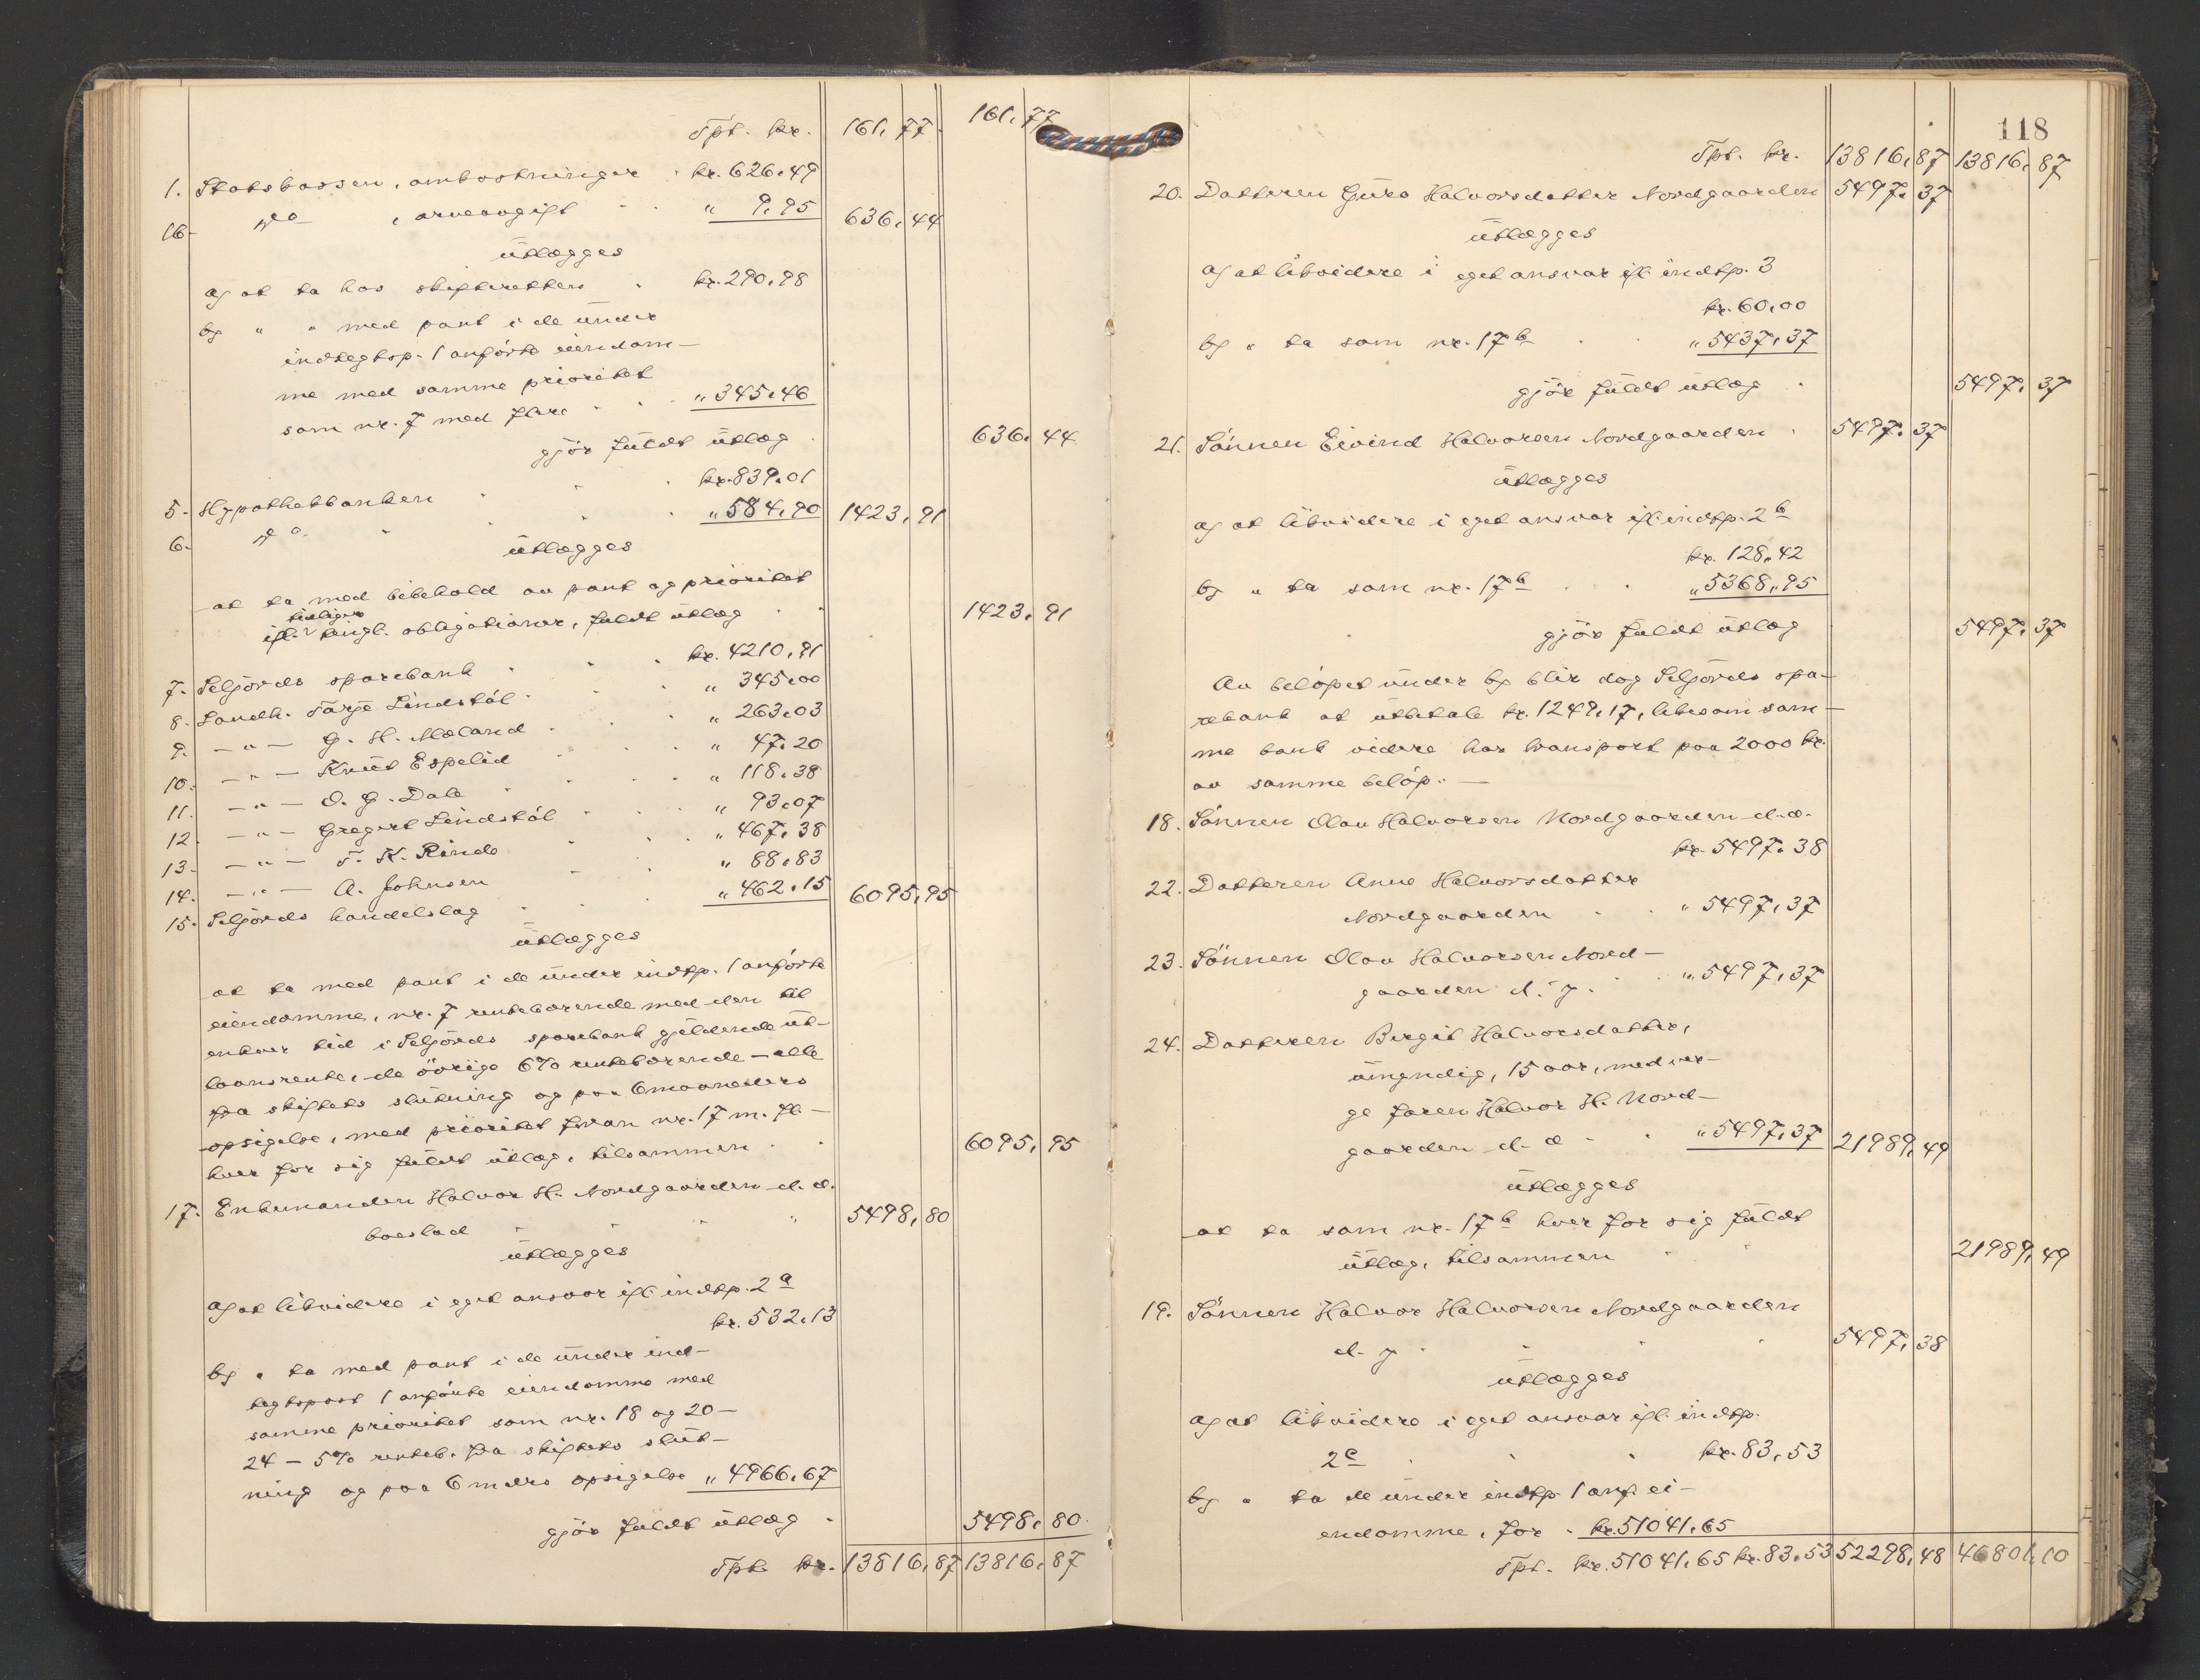 Tpt. kr. 161,77 161,77
1. Statskassen, omkostninger kr. 626,49
16. do , arveavgift " 9,95 636,44
utlægges
a) at ta hos skifteretten kr. 290,98
b) " " med pant i de under
indtegtsp. 1 anførte eiendom-
me med samme prioritet
som nr. 7 med flere " 345,46
gjør fuldt utlæg 636,44
5. Hypothekbanken kr. 839,01
6. do " 584,90 1423,91
utlægges
at ta med bibehold av pant og prioritet
ifl. tidligere tingl. obligationer, fuldt utlæg 1423,91
7. Seljords sparebank kr. 4210,91
8. Landh. Tarje Lindstøl " 345,00
9. -"- G. H. Mæland " 263,03
10. -"- Knut Espelid " 47,20
11. -"- O. G. Dale " 118,38
12. -"- Gregert Lindstøl " 93,07
13. -"- T. K. Rinde " 467,38
14. -"- A. Johnsen " 88,83
15. Seljords handelslag " 462,15 6095,95
utlægges
at ta med pant i de under indtp. 1 anførte
eiendomme, nr. 7 rentebærende med den til
enhver tid i Seljords sparebank gjeldende ut-
laansrente, de øvrige 6% rentebærende - alle
fra skiftets slutning og paa 6 maaneders
opsigelse, med prioritet foran nr. 17 m. fl. -
hver for sig fuldt utlæg, tilsammen 6095,95
17. Enkemanden Halvor H. Nordgaarden d. æ.
boeslod 5498,80
utlægges
a) at likvidere i eget ansvar ifl. indtp. 2a
kr. 532,13
b) " ta med pant i de under ind-
tegtspost 1 anførte eiendomme med
samme prioritet som nr. 18 og 20-
24 - 5% renteb. fra skiftets slut-
ning og paa 6 mdrs opsigelse " 4966,67
gjør fuldt utlæg 5498,80
Tpt. kr. 13816,87 13816,87
118
Tpt. kr. 13816,87 13816,87
20. Datteren Guro Halvorsdatter Nordgaarden 5497,37
utlægges
a) at likvidere i eget ansvar ifl. indtp. 3
kr. 60,00
b) " ta som nr. 17b " 5437,37
gjør fuldt utlæg 5497,37
21. Sønnen Eivind Halvorsen Nordgaarden 5497,37
utlægges
a) at likvidere i eget ansvar ifl. indtp. 2b
kr. 128,42
b) " ta som nr. 17b " 5368,95
gjør fuldt utlæg 5497,37
Av beløpet under b) blir dog Seljords spa-
rebank at utbetale kr. 1249,17, likesom sam-
me bank videre har transport paa 2000 kr.
av samme beløp. -
18. Sønnen Olav Halvorsen Nordgaarden d. æ.
kr. 5497,38
22. Datteren Anne Halvorsdatter
Nordgaarden " 5497,37
23. Sønnen Olav Halvorsen Nord-
gaarden d. y. " 5497,37
24. Datteren Birgit Halvorsdatter,
umyndig, 15 aar, med ver-
ge faren Halvor H. Nord-
gaarden d. æ " 5497,37 21989,49
utlægges
at ta som nr. 17b hver for sig fuldt
utlæg, tilsammen 21989,49
19. Sønnen Halvor Halvorsen Nordgaarden
d. y 5497,38
utlægges
a) at likvidere i eget ansvar ifl. indtp.
2c kr. 83,53
b) " ta de under indtp. 1 anf. ei-
endomme, for kr. 51041,65
Tpt. kr. 51041,65 kr. 83,53 52298,48 46801,10